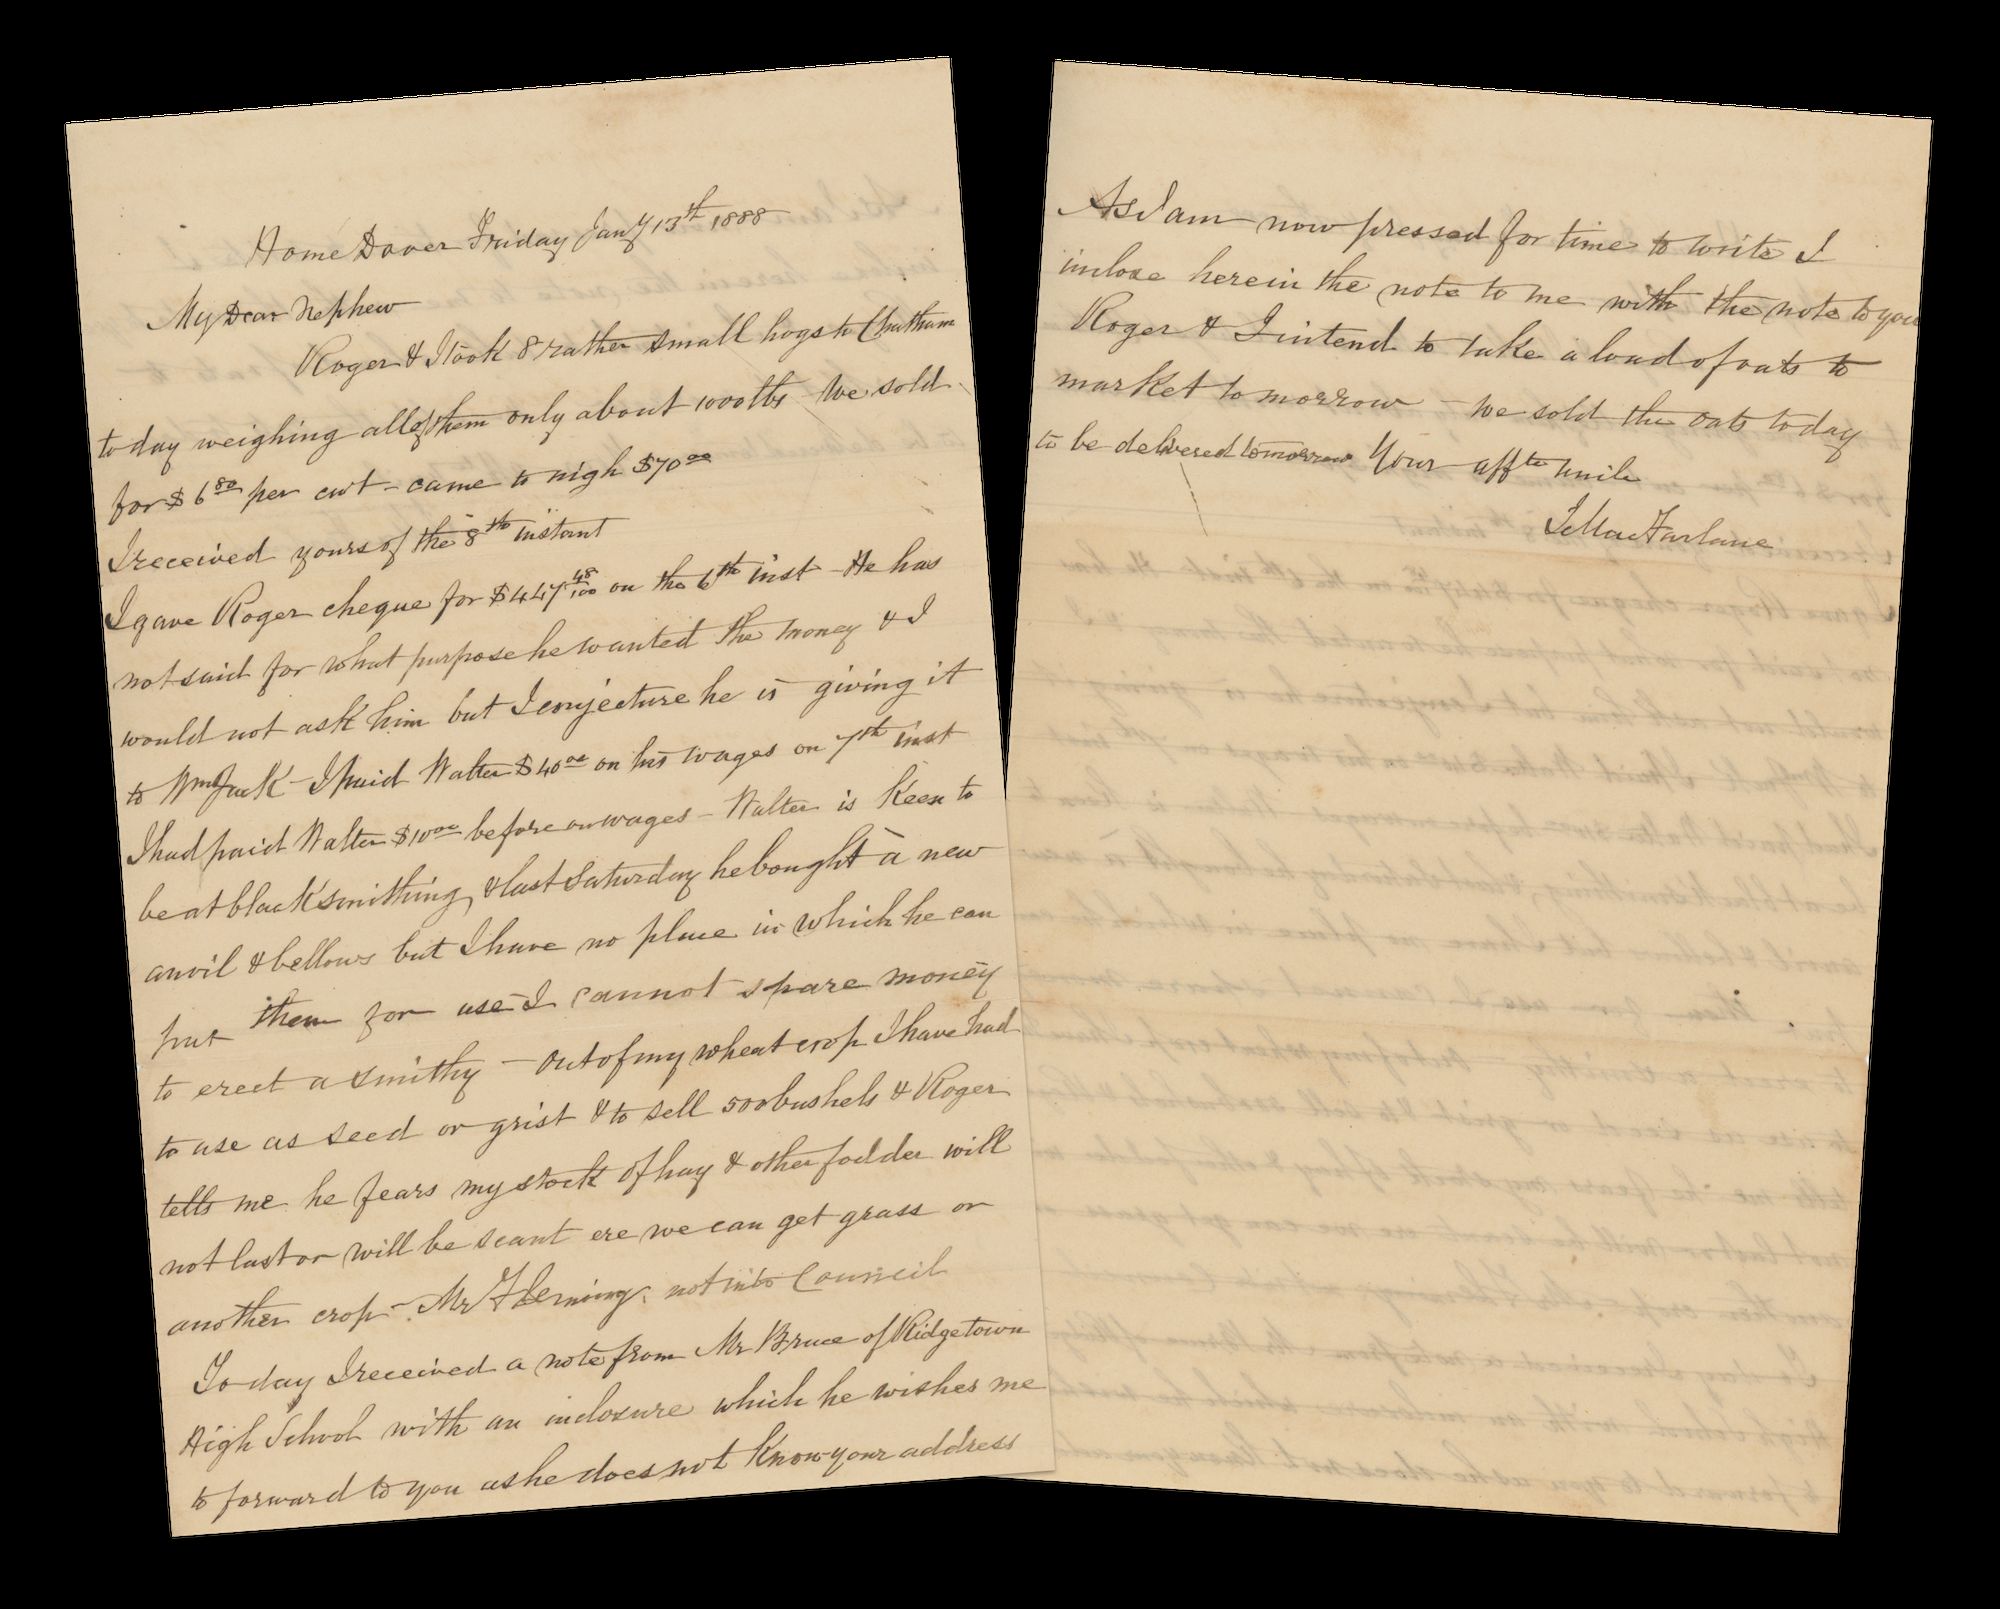 Home Dover Friday Jany 13th 1888
My Dear Nephew
Roger & I took 8 rather small hogs to Chatham
today weighing all of them only about 1000 lbs - We sold
for $6 80 per cwt - came to nigh $70 00
I received yours of the 8th instant
I gave Roger cheque for $447 48/100 on the 6th inst - He has
not said for what purpose he wanted the money & I
would not ask him but I conjecture he is giving it
to Wm Jack - I paid Walter $40 00 on his wages on 7th inst
I had paid Walter $10 00 before on wages - Walter is keen to
be at blacksmithing, & last Saturday he bought a new
anvil & bellows but I have no place in which he can
put them for use - I cannot spare money
to erect a smithy - Out of my wheat crop I have had
to use as seed or grist & to sell 500 bushels & Roger
tells me he fears my stock of hay & other fodder will
not last or will be scant ere we can get grass or
another crop - Mr Fleming, not into Council
To day I received a note from Mr Bruce of Ridgetown
High School with an inclosure which he wishes me
to forward to you as he does not know your address
As I am now pressed for time to write I
inclose herein the note to me with the note to you
Roger & I intend to take a load of oats to
market tomorrow - we sold the oats today
to be delivered tomorrow Your affte uncle
MacFarlane